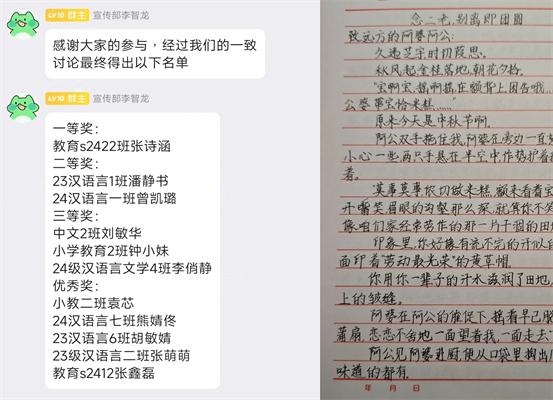 LV10 群主 宣传部李智龙
感谢大家的参与，经过我们的一致
讨论最终得出以下名单
LV10 群主 宣传部李智龙
一等奖：
教育s2422班张诗涵
二等奖：
23汉语言1班潘静书
24汉语言一班曾凯璐
三等奖：
中文2班刘敏华
小学教育2班钟小妹
24级汉语言文学4班李俏静
优秀奖：
小教二班袁芯
24汉语言七班熊婧佟
23汉语言6班胡敏婧
23级汉语言二班张萌萌
教育s2412张鑫磊
念二老，别离即团圆
致远方的阿婆阿公：
久违芝宇时切葭思。
秋风起，金桂落地，朝花夕拾。
原来今天是中秋节啊。
阿公双手拖住我，阿婆在旁边一直
小心一些，两只手悬在半空中作势护着
着。
开嘴笑眉眼的沟壑那么深，就算你不笑
像咱们家经常劳作的那一片子湿的田地
印象里，你好像有说不完的汗似的
面印着“劳动最光荣”的黄草帽。
你用你一辈子的汗水滋润了田地，
上的皱缝。
阿婆在阿公的催促下，摇着早已脱
蒲扇，恋恋不舍地一面望着我，一面走去
阿公见阿婆进厨，便从口袋里掏出
味道的都有。
年 月 日